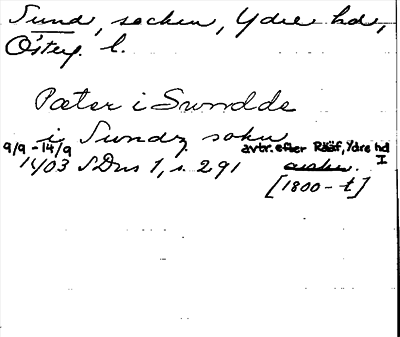 Sund, socken, Ydre hd,
Österg. l.
Pæter i Swndde
i Sundz sokn
9/9 - 14/9 avtr. efter Rääf, Ydre hd I
1403 SDns 1, s. 291
[1800-t]